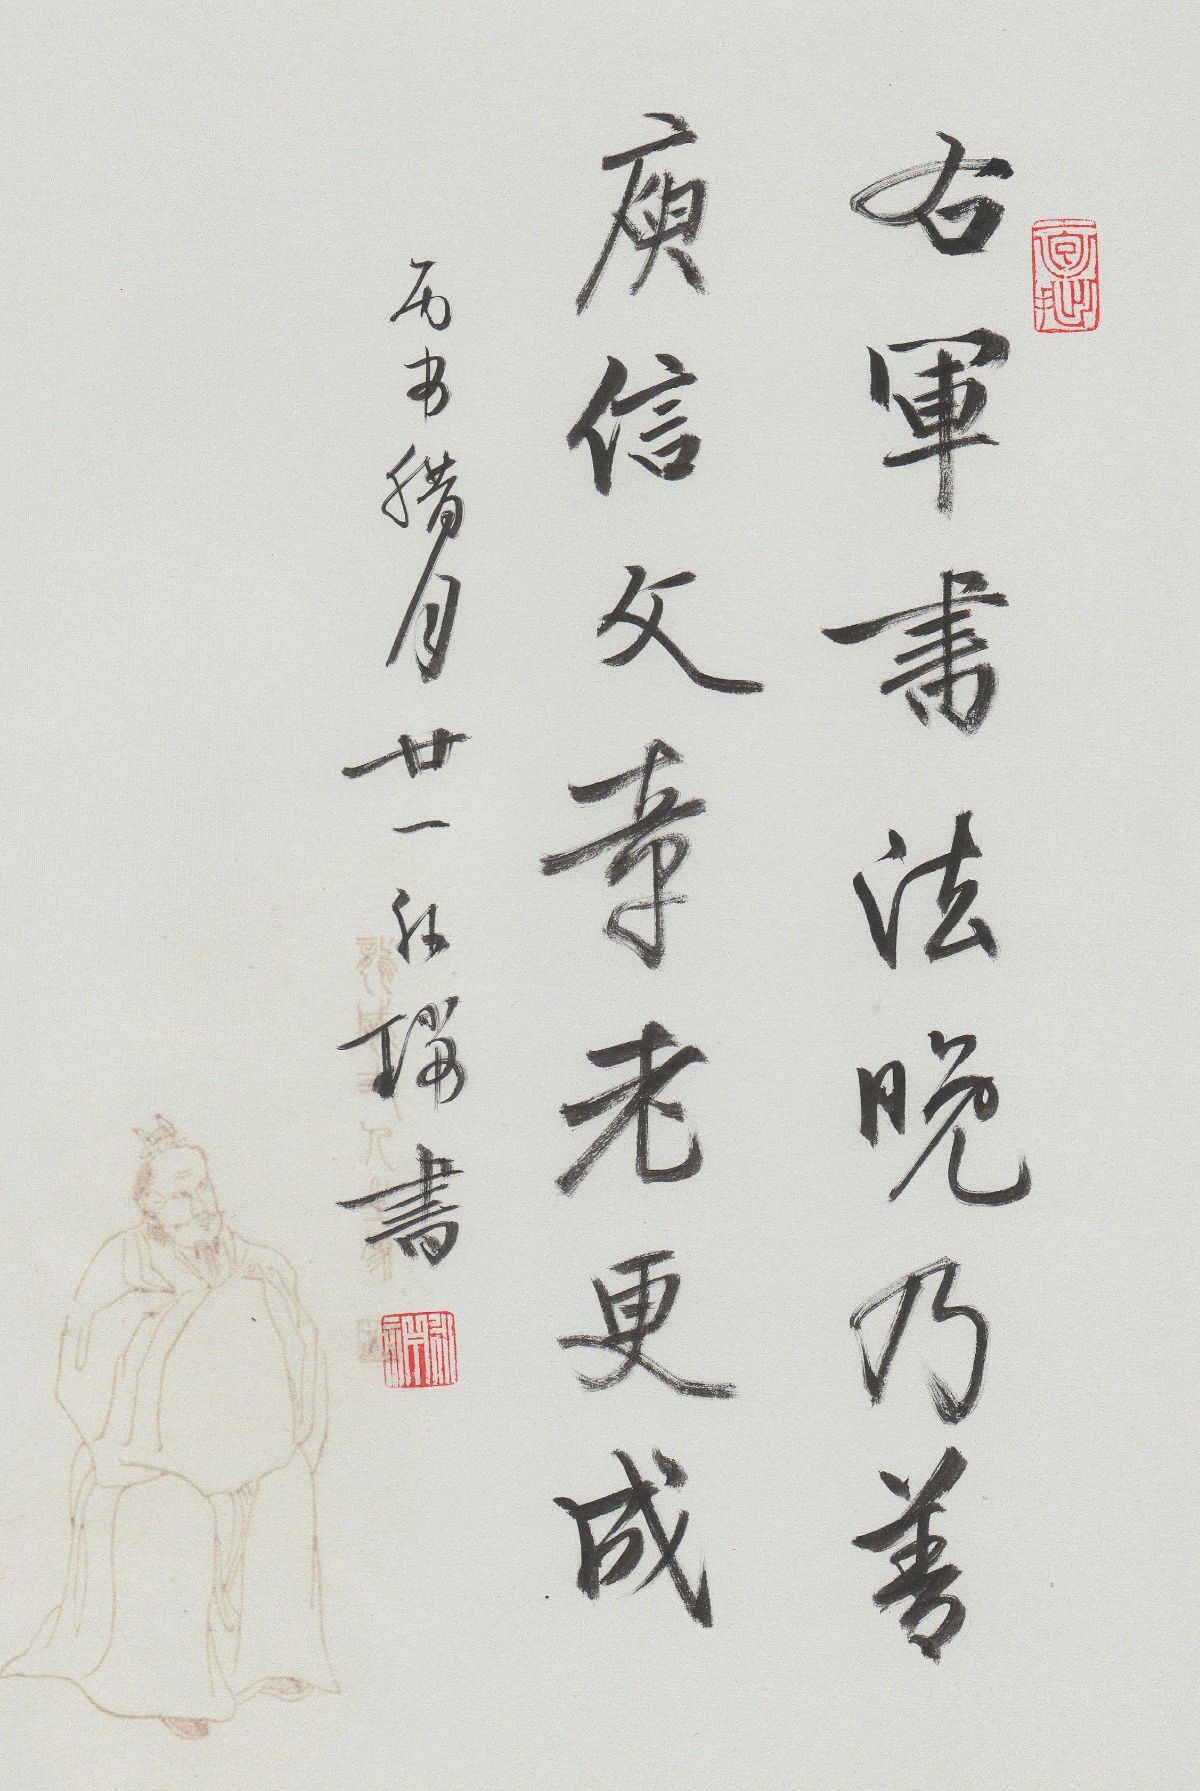 右軍書法晚乃善
庾信文章老更成
腊月廿一 書